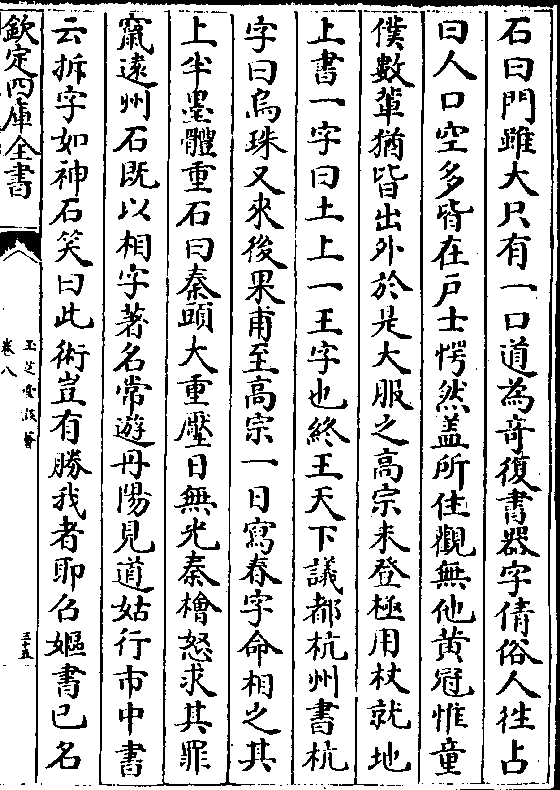 石曰門雖大只有一口道為竒復書器字倩俗人徃占
曰人口空多皆在戸士愕然盖所住觀無他黄冠惟童
僕數輩猶皆出外於是大服之高宗未登極用杖就地
上書一字曰土上一王字也終王天下議都杭州書杭
字曰烏珠又來後果甫至高宗一日寫春字命相之其
上半墨體重石曰秦頭大重壓日無光秦檜怒求其罪
竄逺州石既以相字著名常遊丹陽見道姑行市中書
云拆字如神石笑曰此術豈有勝我者耶召嫗書已名
欽定四庫全書
玉芝堂談薈
卷八
三十五